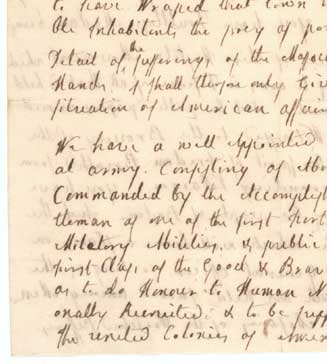 to have escaped that town
ble Inhabitants the prey of po
Detail of the sufferings, of the Massac
Hands, I shall therefore only Giv
situation of American affair
We have a well Appointed
al army. Consisting of Abo
Commanded by the Accomplish
tleman of one of the first Fort
Military Abilities, & public
first Class, of the Good & Brav
as to do Honour to Human N
onally Recruited, & to be supp
The united Colonies of Amer